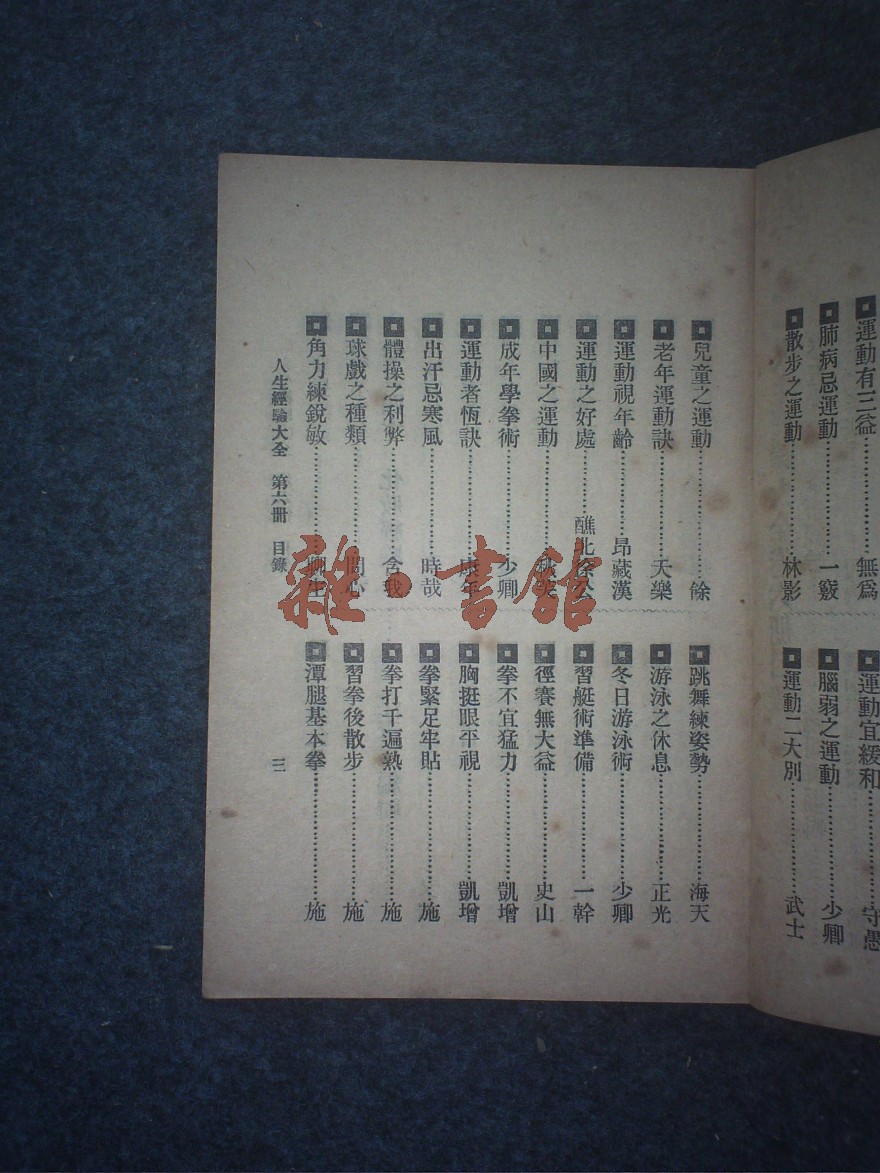 運動有三益……無爲
肺病忌運動……一竅
散步之運動……林影
運動宜緩和……守愚
腦弱之運動……少卿
運動二大別……武士
兒童之運動……餘
老年運動訣……天樂
運動視年齡……昂藏漢
運動之好處……醮北徐公
中國之運動……
成年學拳術……少卿
運動者恆訣……
出汗忌寒風……時哉
體操之利弊……含我
球戲之種類……問心
角力練銳敏……
跳舞練姿勢……海天
游泳之休息……正光
冬日游泳術……少卿
習艇術準備……一幹
徑賽無大益……史山
拳不宜猛力……凱增
胸挺眼平視……凱增
拳緊足牢貼……施
拳打千遍熟……施
習拳後散步……施
潭腿基本拳……施
人生經驗大全 第六冊 目錄 三
雜·書館